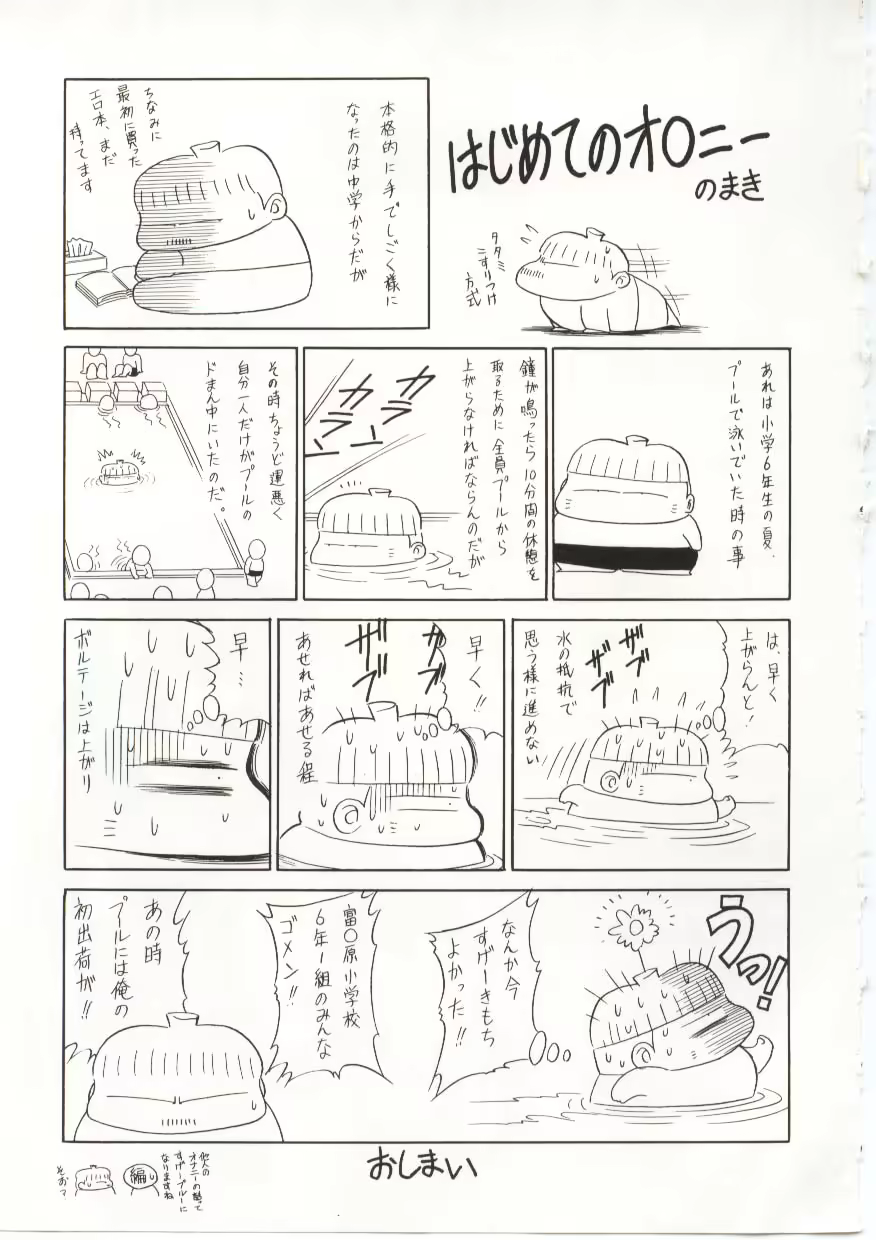 はじめてのオ〇ニー
のまき
タタミ
こすりつけ
方式
本格的に手でしごく様に
なったのは中学からだが
ちなみに
最初に買った
エロ本、まだ
持ってます
あれは小学6年生の夏、
プールで泳いでいた時の事
鐘が鳴ったら10分間の休憩を
取るために全員プールから
上がらなければならんのだが
カラーン
カラーン
その時ちょうど運悪く
自分一人だけがプールの
ドまん中にいたのだ。
は、早く
上がらんと!
ザブ
ザブ
水の抵抗で
思う様に進めない
早く!!
ザブ
ザブ
あせればあせる程
早…
ボルテージは上がり
うっ!
なんか今
すげーきもち
よかった!!
富〇原小学校
6年1組のみんな
ゴメン!!
あの時
プールには俺の
初出荷が!!
おしまい
他人の
オナニーの話って
すげーブルーに
なりますね
編
そお?